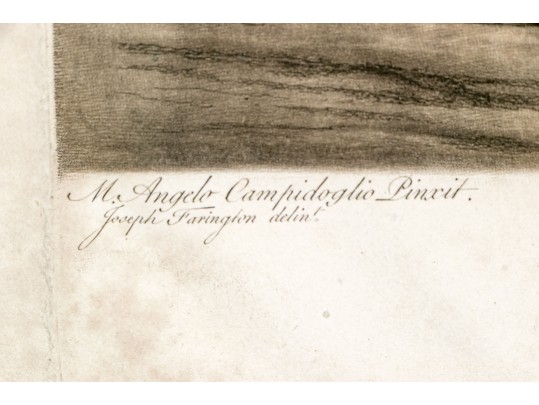 M. Angelo Campidoglio Pinxit.
Joseph Farington delint.